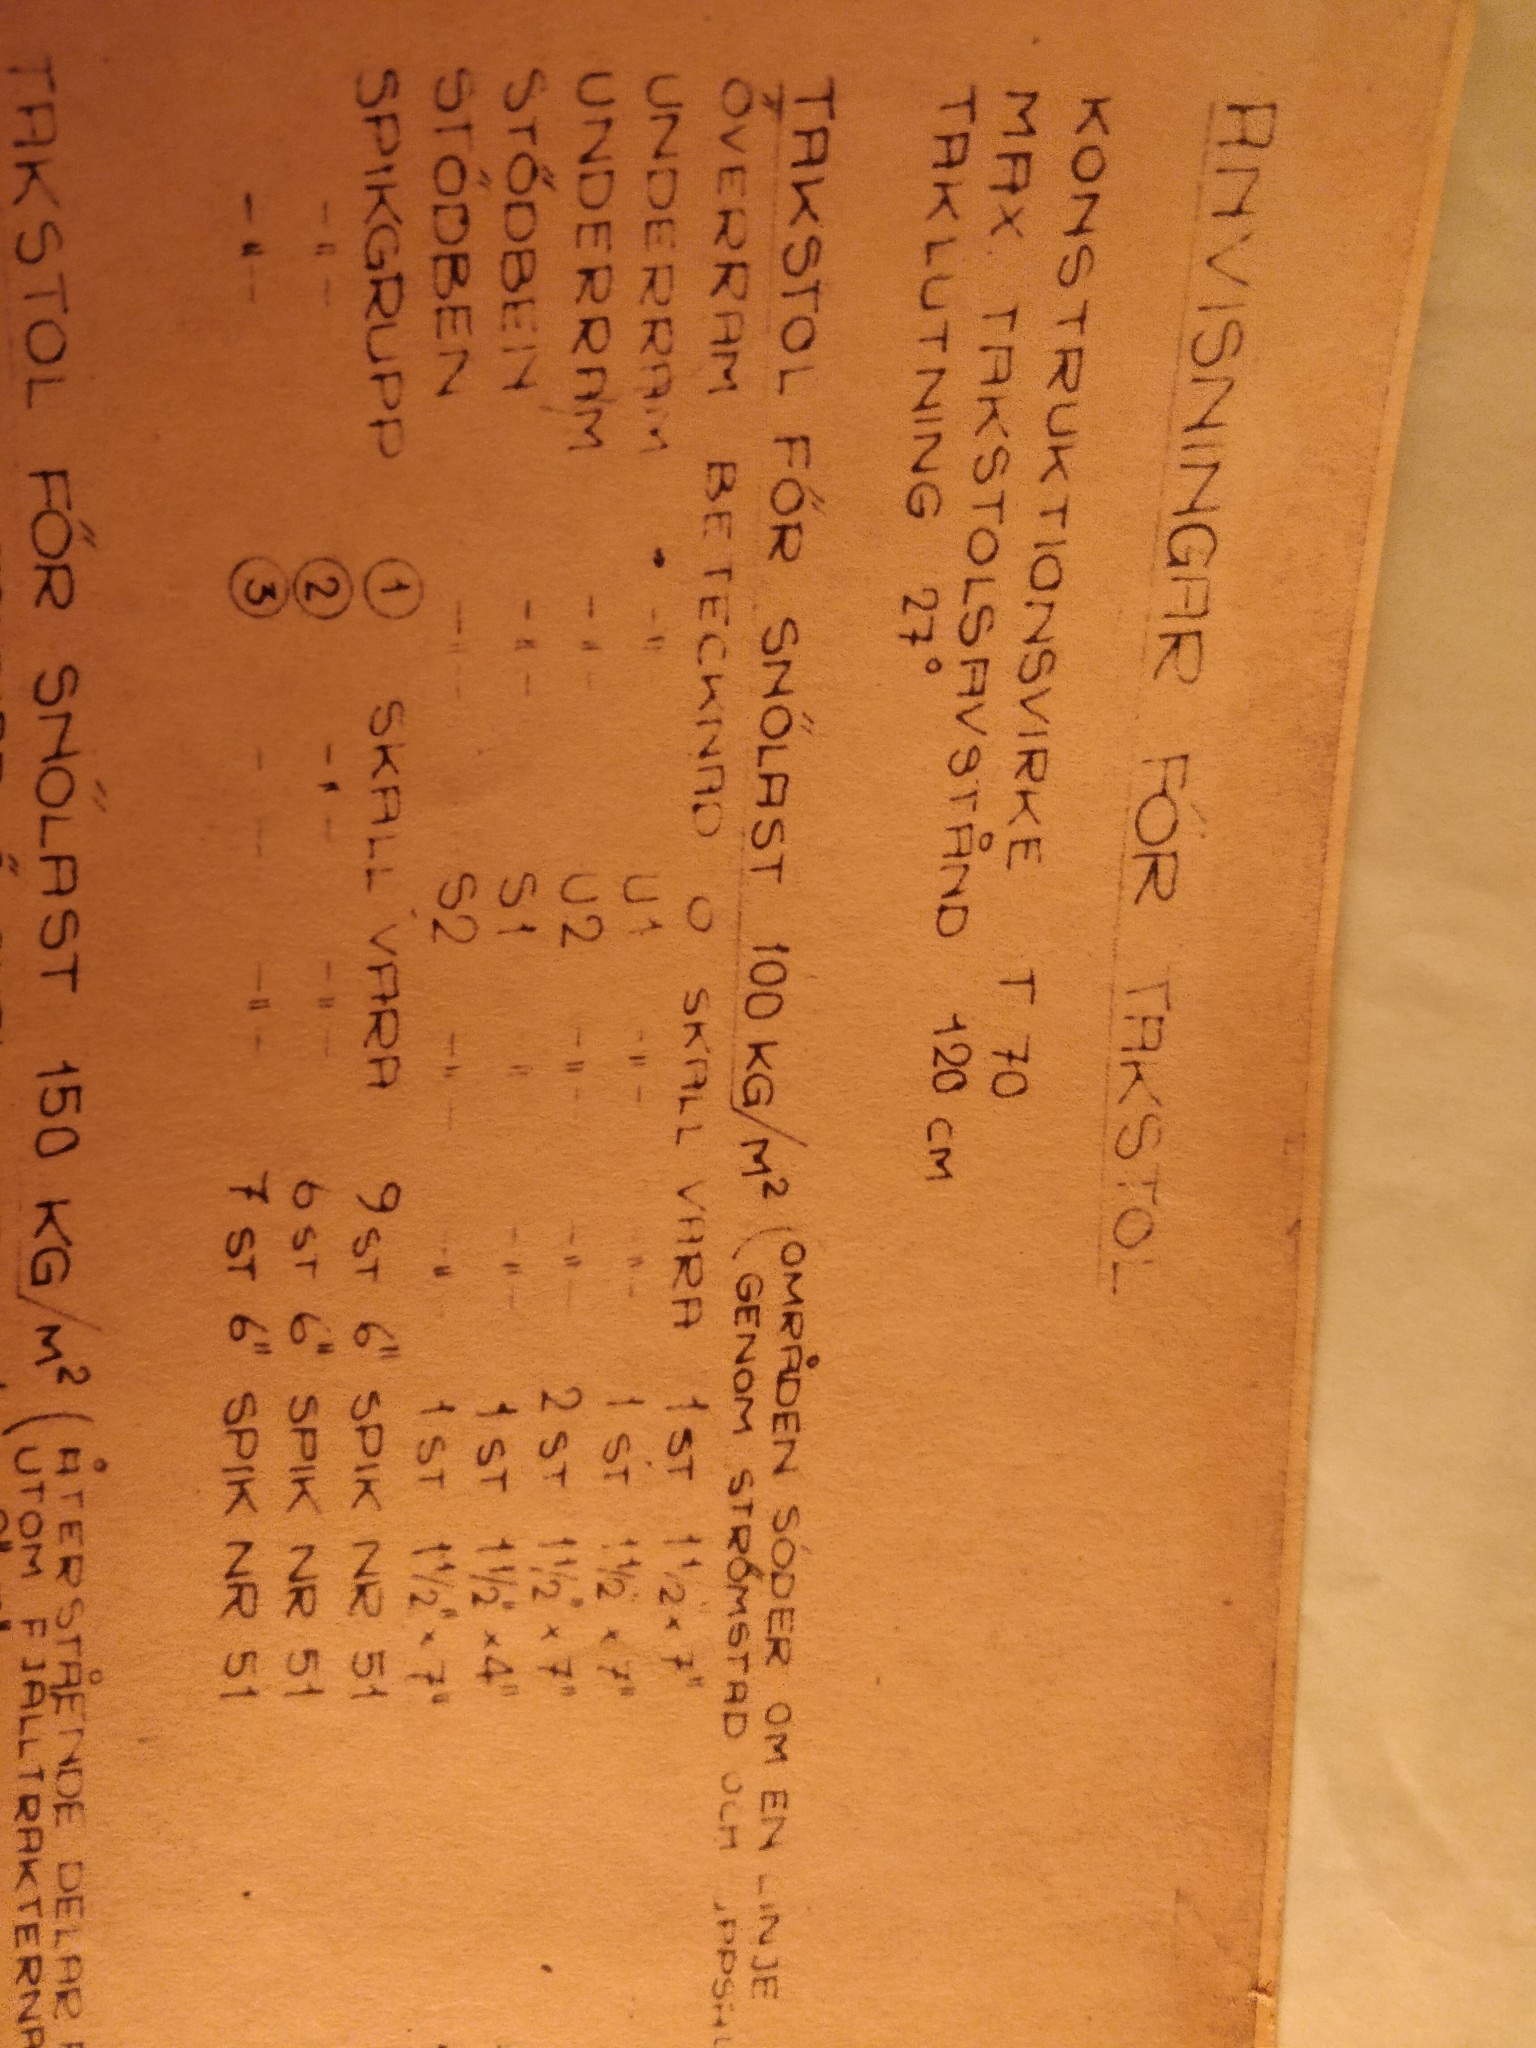 ANVISNINGAR FÖR TAKSTOL
KONSTRUKTIONSVIRKE T 70
MAX TAKSTOLSAVSTÅND 120 CM
TAKLUTNING 27°
TAKSTOL FÖR SNÖLAST 100 KG/M² (OMRÅDEN SÖDER OM EN LINJE
(GENOM STRÖMSTAD OCH
ÖVERRAM BETECKNAD O SKALL VARA 1 ST 1 1/2 x 7"
UNDERRAM -"- U1 -"- -"- 1 ST 1 1/2 x 7"
UNDERRAM -"- U2 -"- -"- 2 ST 1 1/2" x 7"
STÖDBEN -"- S1 " -"- 1 ST 1 1/2" x 4"
STÖDBEN -"- S2 -"- -"- 1 ST 1 1/2" x 7"
SPIKGRUPP 1 SKALL VARA 9 ST 6" SPIK NR 51
-"- 2 -"- -"- 6 ST 6" SPIK NR 51
-"- 3 - - -"- 7 ST 6" SPIK NR 51
TAKSTOL FÖR SNÖLAST 150 KG/M² (ÅTERSTÅENDE DELAR
(UTOM FJÄLLTRAKTERNA